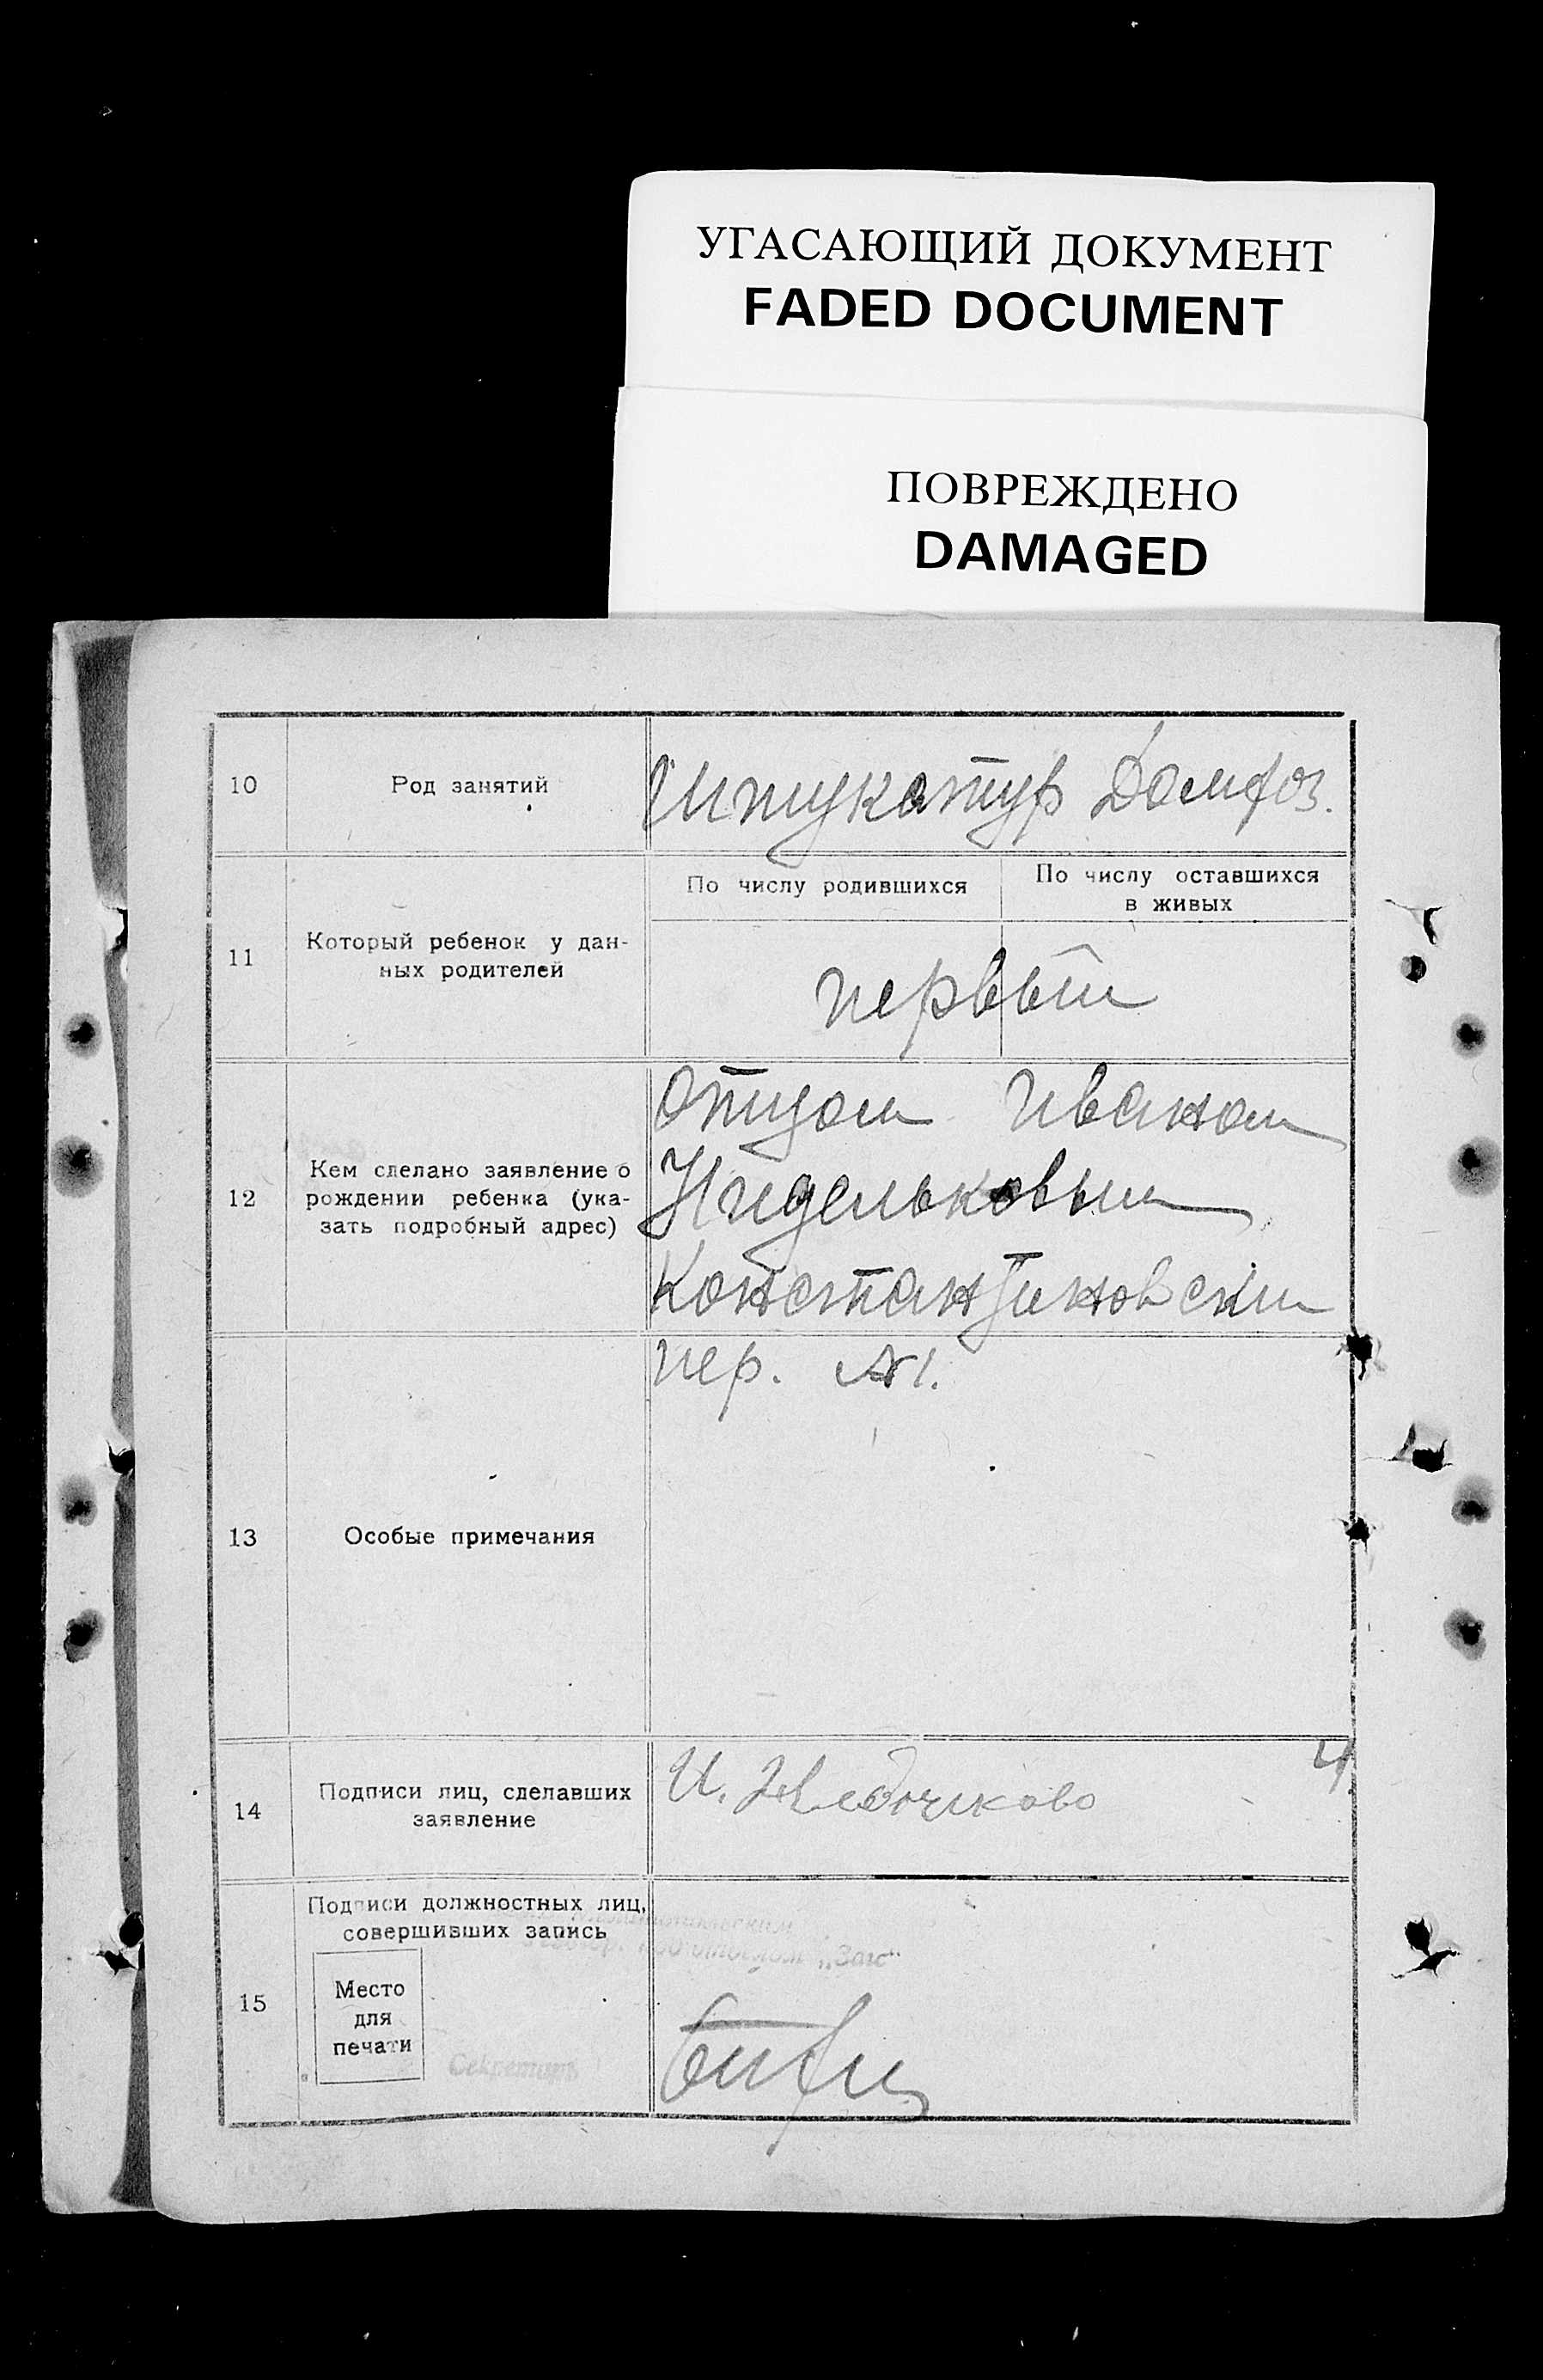 УГАСАЮЩИЙ ДОКУМЕНТ
FADED DOCUMENT
ПОВРЕЖДЕНО
DAMAGED
10
Род занятий
Штукатур
11
Который ребенок у дан-
ных родителей
По числу родившихся
По числу оставшихся
в живых
первый
12
Кем сделано заявление о
рождении ребенка (ука-
зать подробный адрес)
Отцом Иваном
Константиновский
пер. №1.
13
Особые примечания
14
Подписи лиц, сделавших
заявление
И.
15
Подписи должностных лиц,
совершивших запись
"Загс"
Место
для
печати
Секретарь